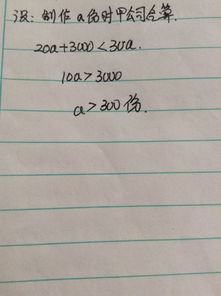 设:制作a份时甲公司合算.
20a+3000<30a.
10a>3000
a>300份.